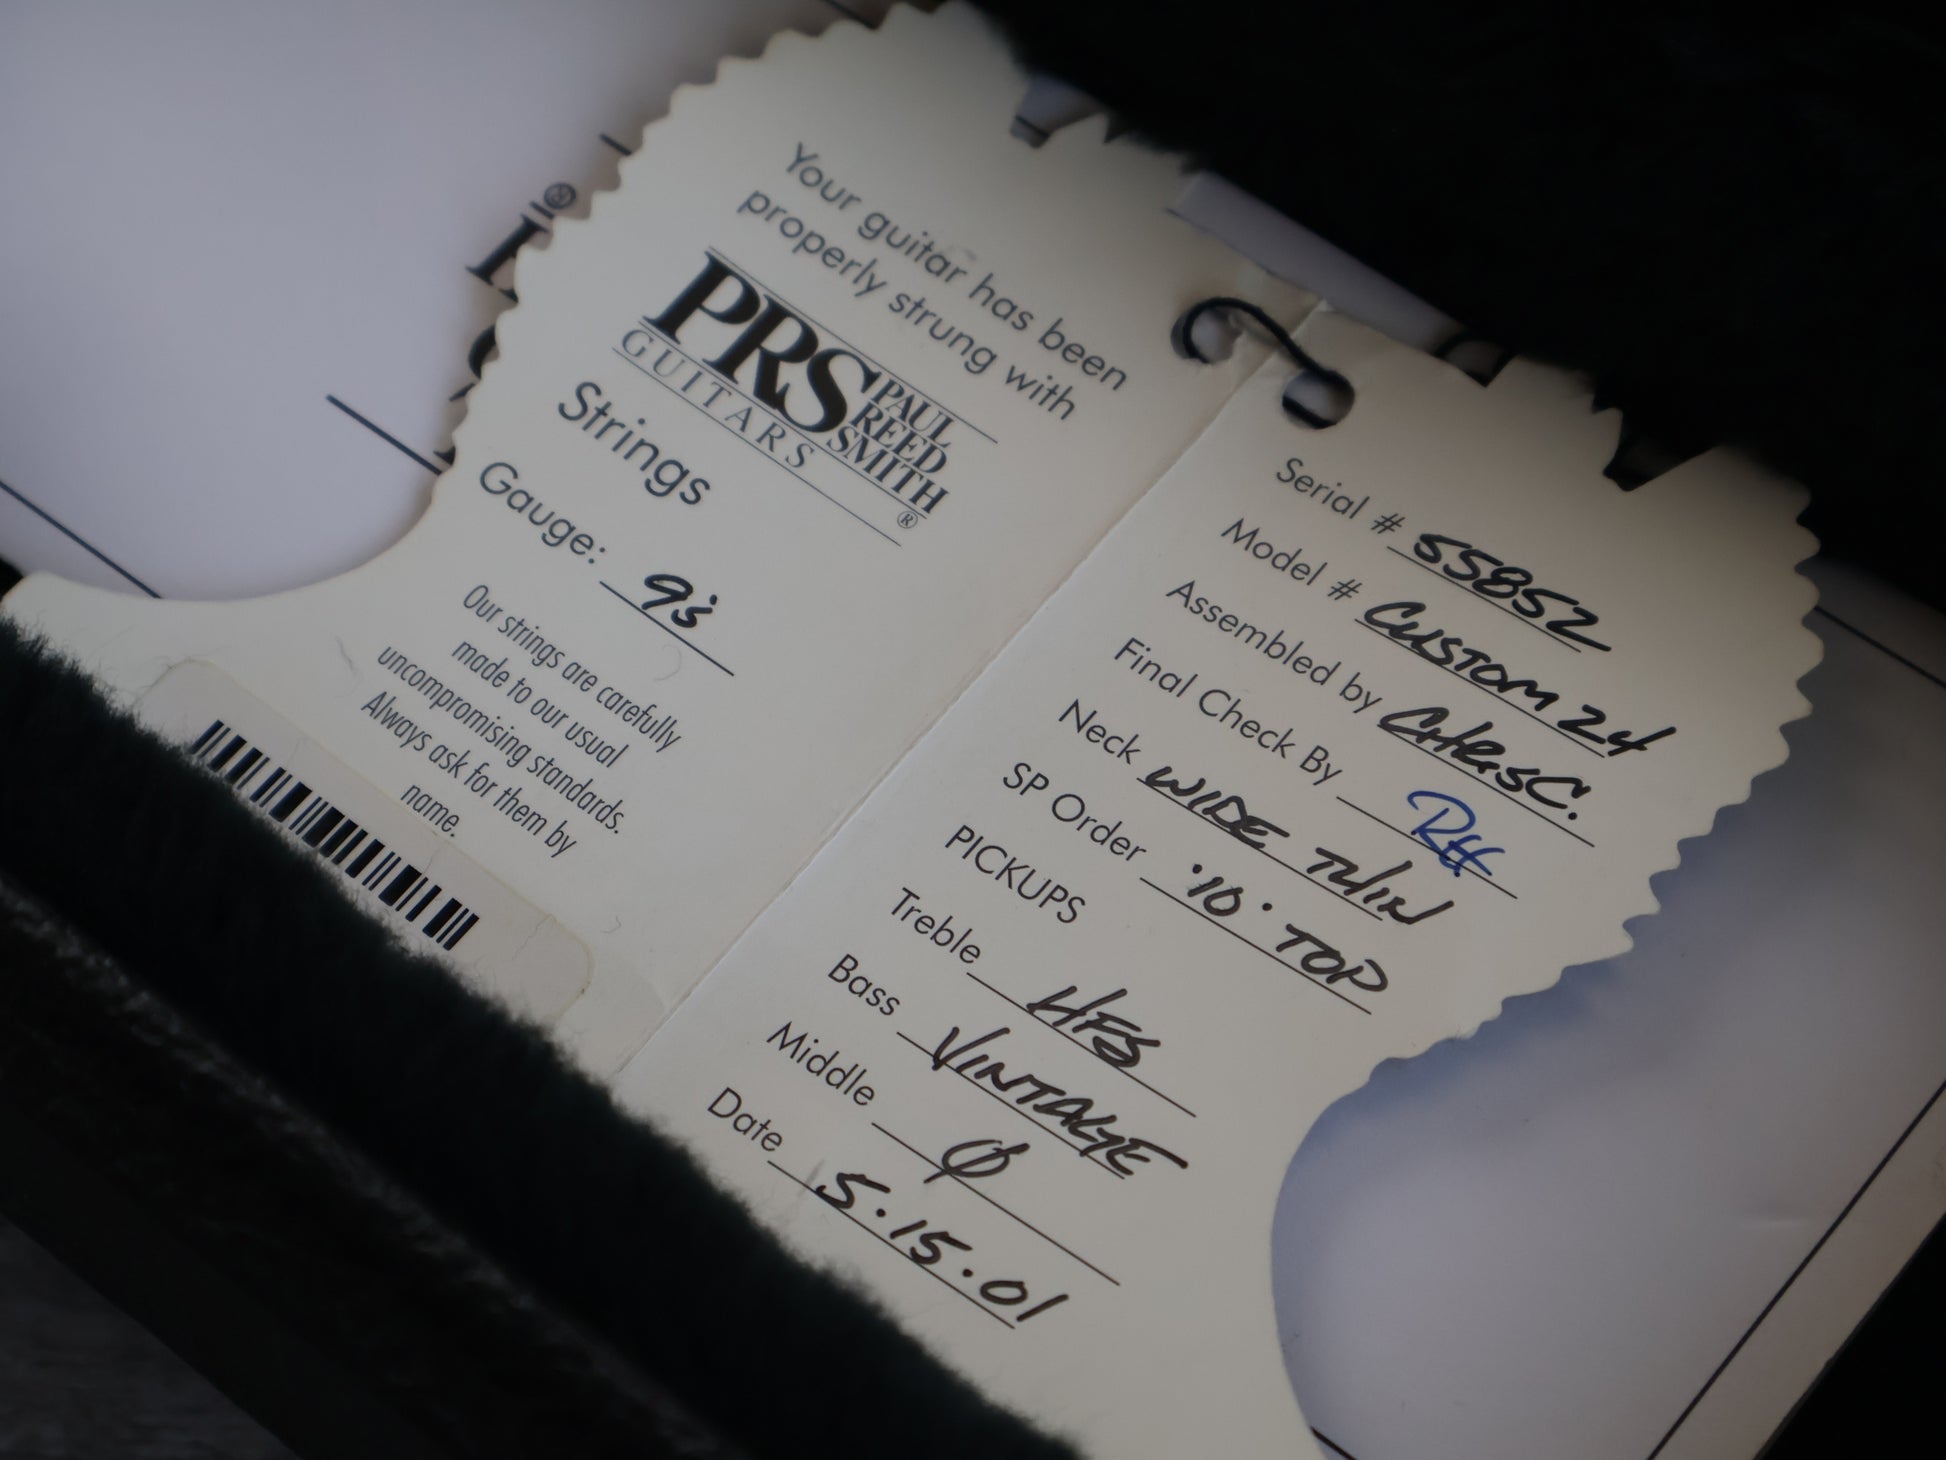 Your guitar has been
properly strung with
PRS PAUL REED SMITH
GUITARS ®
Strings
Gauge: 9's
Our strings are carefully
made to our usual
uncompromising standards.
Always ask for them by
name.
Serial # 55852
Model # CUSTOM 24
Assembled by CHRIS C.
Final Check By RH
Neck WIDE THIN
SP Order "10" TOP
PICKUPS
Treble HFS
Bass VINTAGE
Middle Ø
Date 5.15.01